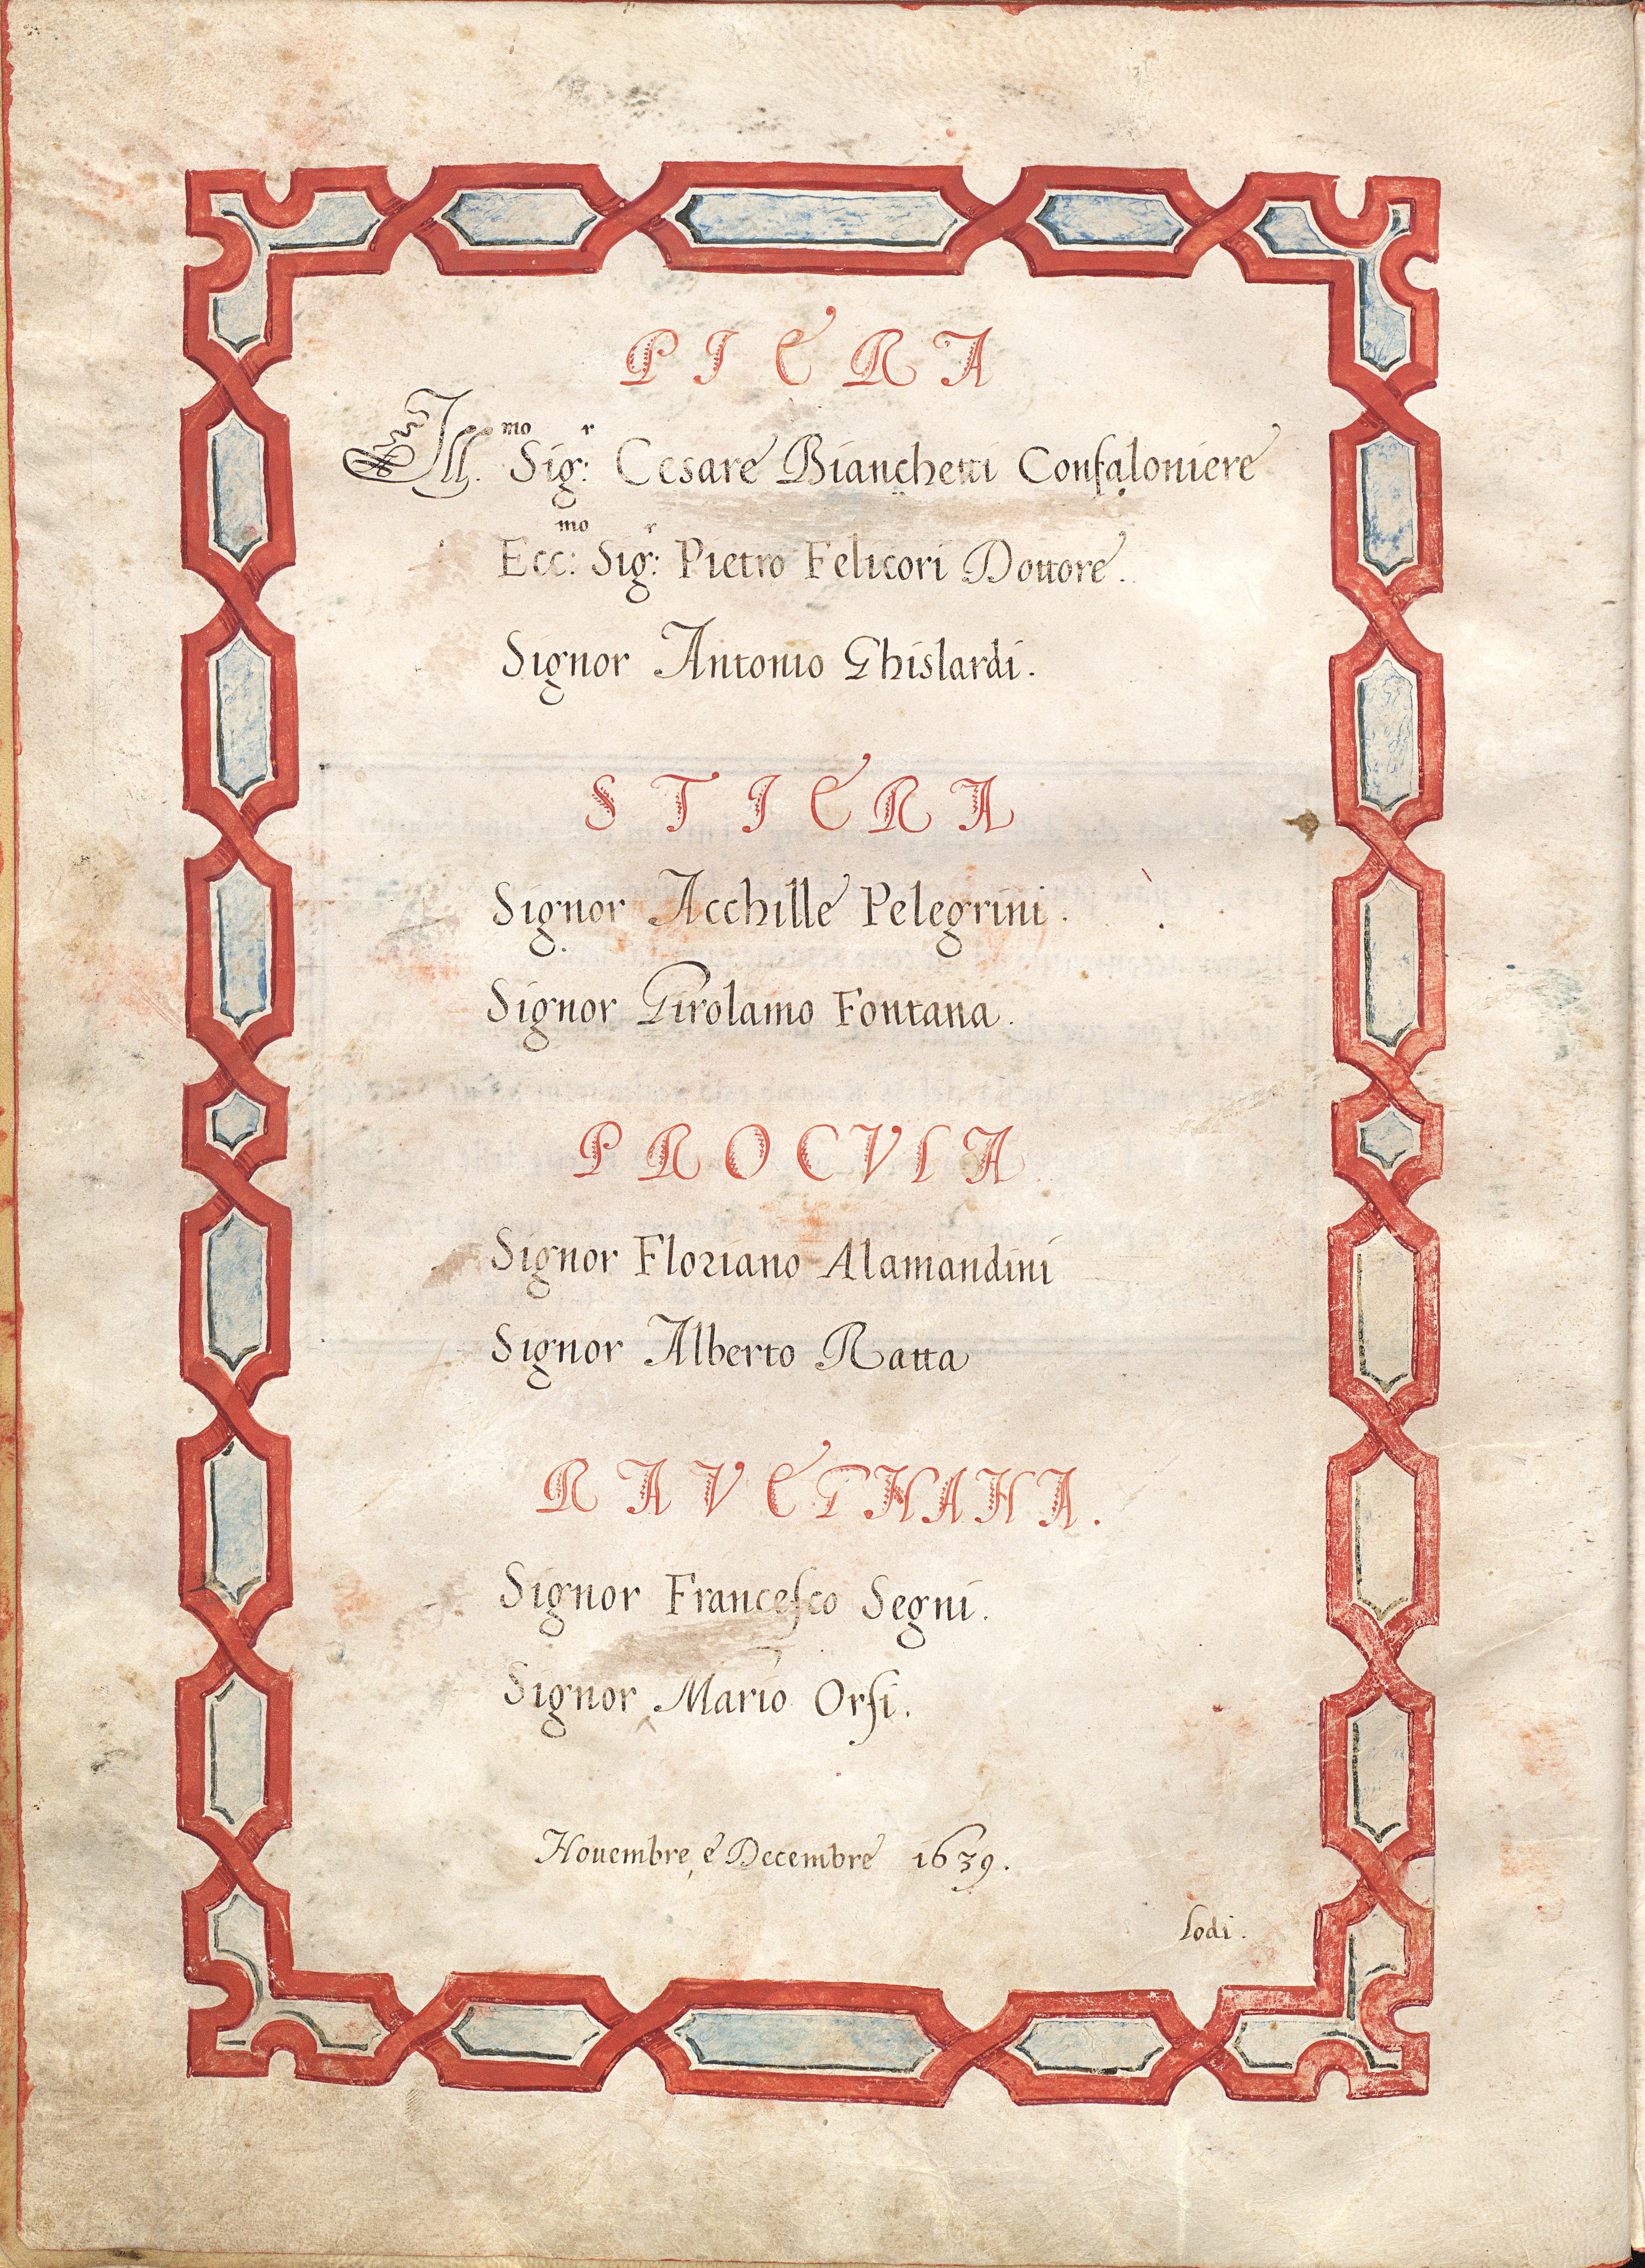 PIERA
Ill.mo Sig:r Cesare Bianchetti Confaloniere
Ecc:mo Sig:r Pietro Felicori Dottore.
Signor Antonio Ghislardi.
STIERA
Signor Acchille Pelegrini.
Signor Girolamo Fontana.
PROCVLA
Signor Floriano Alamandini
Signor Alberto Ratta
RAVEGNANA.
Signor Francesco Segni.
Signor Mario Orsi.
Nouembre, e Decembre 1639.
Lodi.